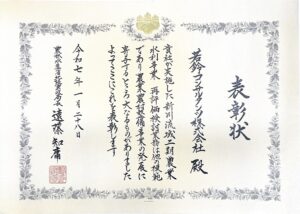 表彰状
若鈴コンサルタンツ株式会社 殿
貴社が実施した新川流域二期農業
水利事業 再評価検討業務は他の模範
であり農業農村整備事業の発展に
寄与するところ大なるものがありました
よってここにこれを表彰します
令和七年一月二十八日
遠藤知庸